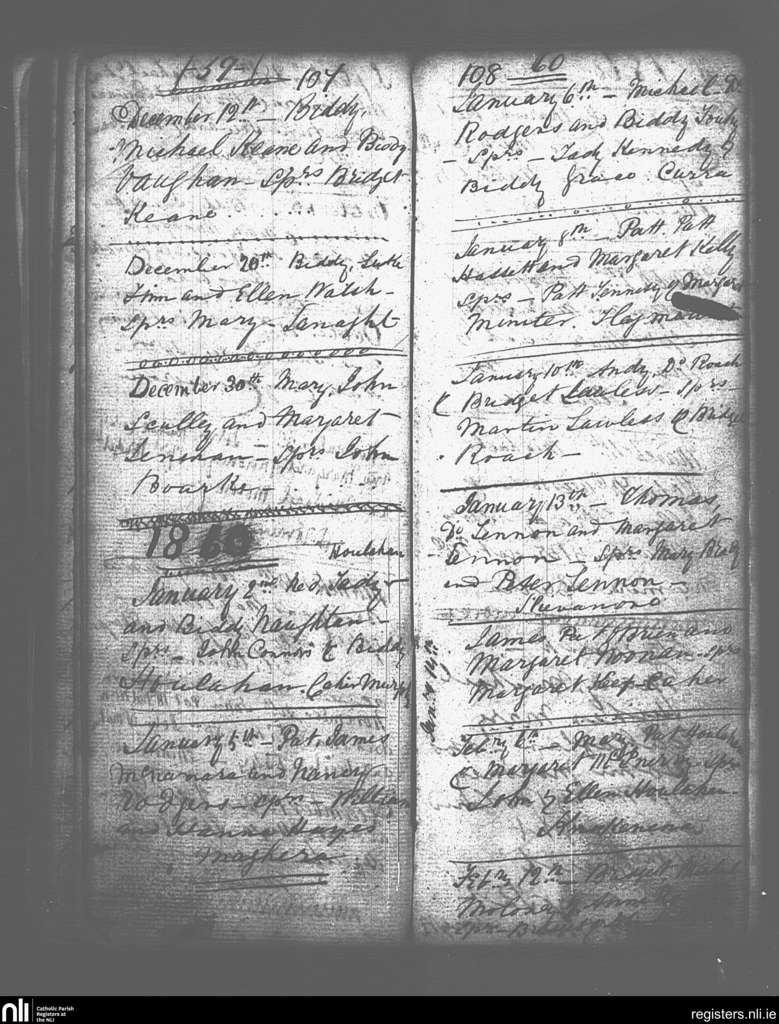 -59- 107
December 12th - Biddy,
Michael Keane and Biddy
Vaughan - Sprs Bridget
Keane.
December 20th Biddy, Luke
Flinn and Ellen Walsh -
Sprs Mary -
December 30th Mary, John
Sculley and Margaret
Leninan - Sprs John
Bourke -
1860
Houlahan
January 2nd Ned, Tady
and Biddy Naughten -
Sprs - John Connors & Biddy
Houlahan.
January 5th - Pat, James
McNamara and Nancy
Rodgers - Sprs - William
and Hanna Hayes
Maghera
108 60
January 6th - Michael Do
Rodgers and Biddy
- Sprs - Tady Kennedy &
Biddy Grace Curra
January 8th - Patt, Patt
Haslett and Margaret Kelly
Sprs - Patt Kennedy & Margaret
Miniter.
January 10th Andy, Do Roach
& Bridget Lawless - Sprs -
Martin Lawless & Bridget
Roach -
January 13th - Thomas,
Do Lennon and Margaret
Lennon - Sprs Mary
and Peter Lennon -
Jany 14th
James Pat OBrien and
Margaret Noonan - Sprs
Margaret
Feb'ry 6th - Mary, Pat
& Margaret - Sprs
John & Ellen Houlahan.
Feb'ry 12th - Bridget
Moloney &
Sprs -
nli
Catholic Parish
Registers at
the NLI
registers.nli.ie